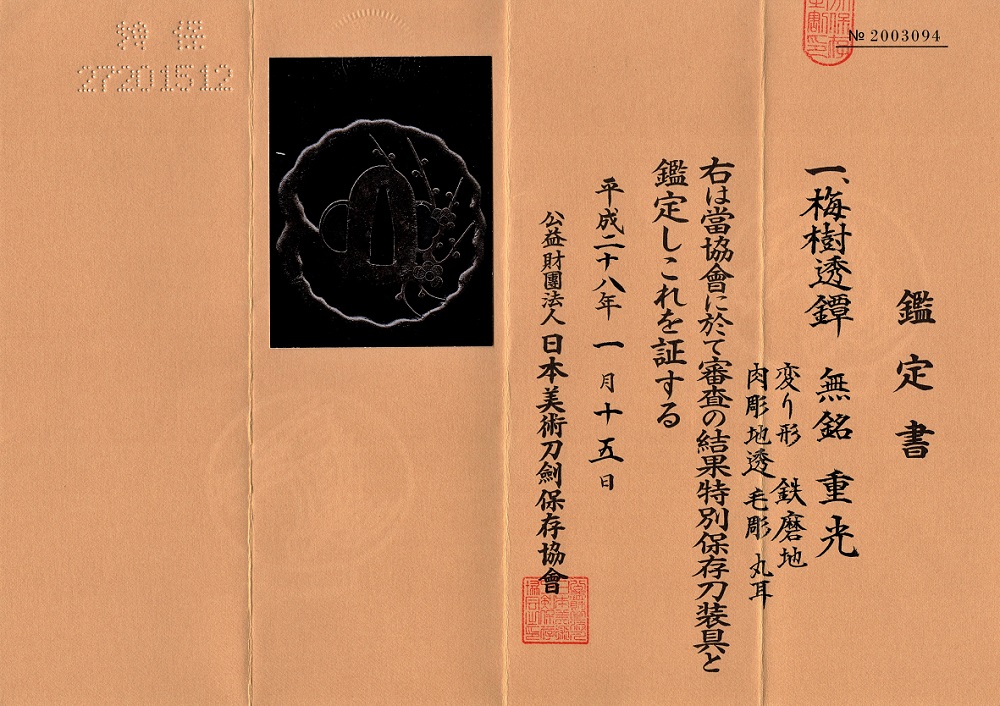 № 2003094
鑑定書
一、梅樹透鐔 無銘 重光
変り形 鉄磨地
肉彫地透 毛彫 丸耳
右は當協會に於て審査の結果特別保存刀装具と
鑑定しこれを証する
平成二十八年一月十五日
公益財團法人 日本美術刀劍保存協會
特保
27201512